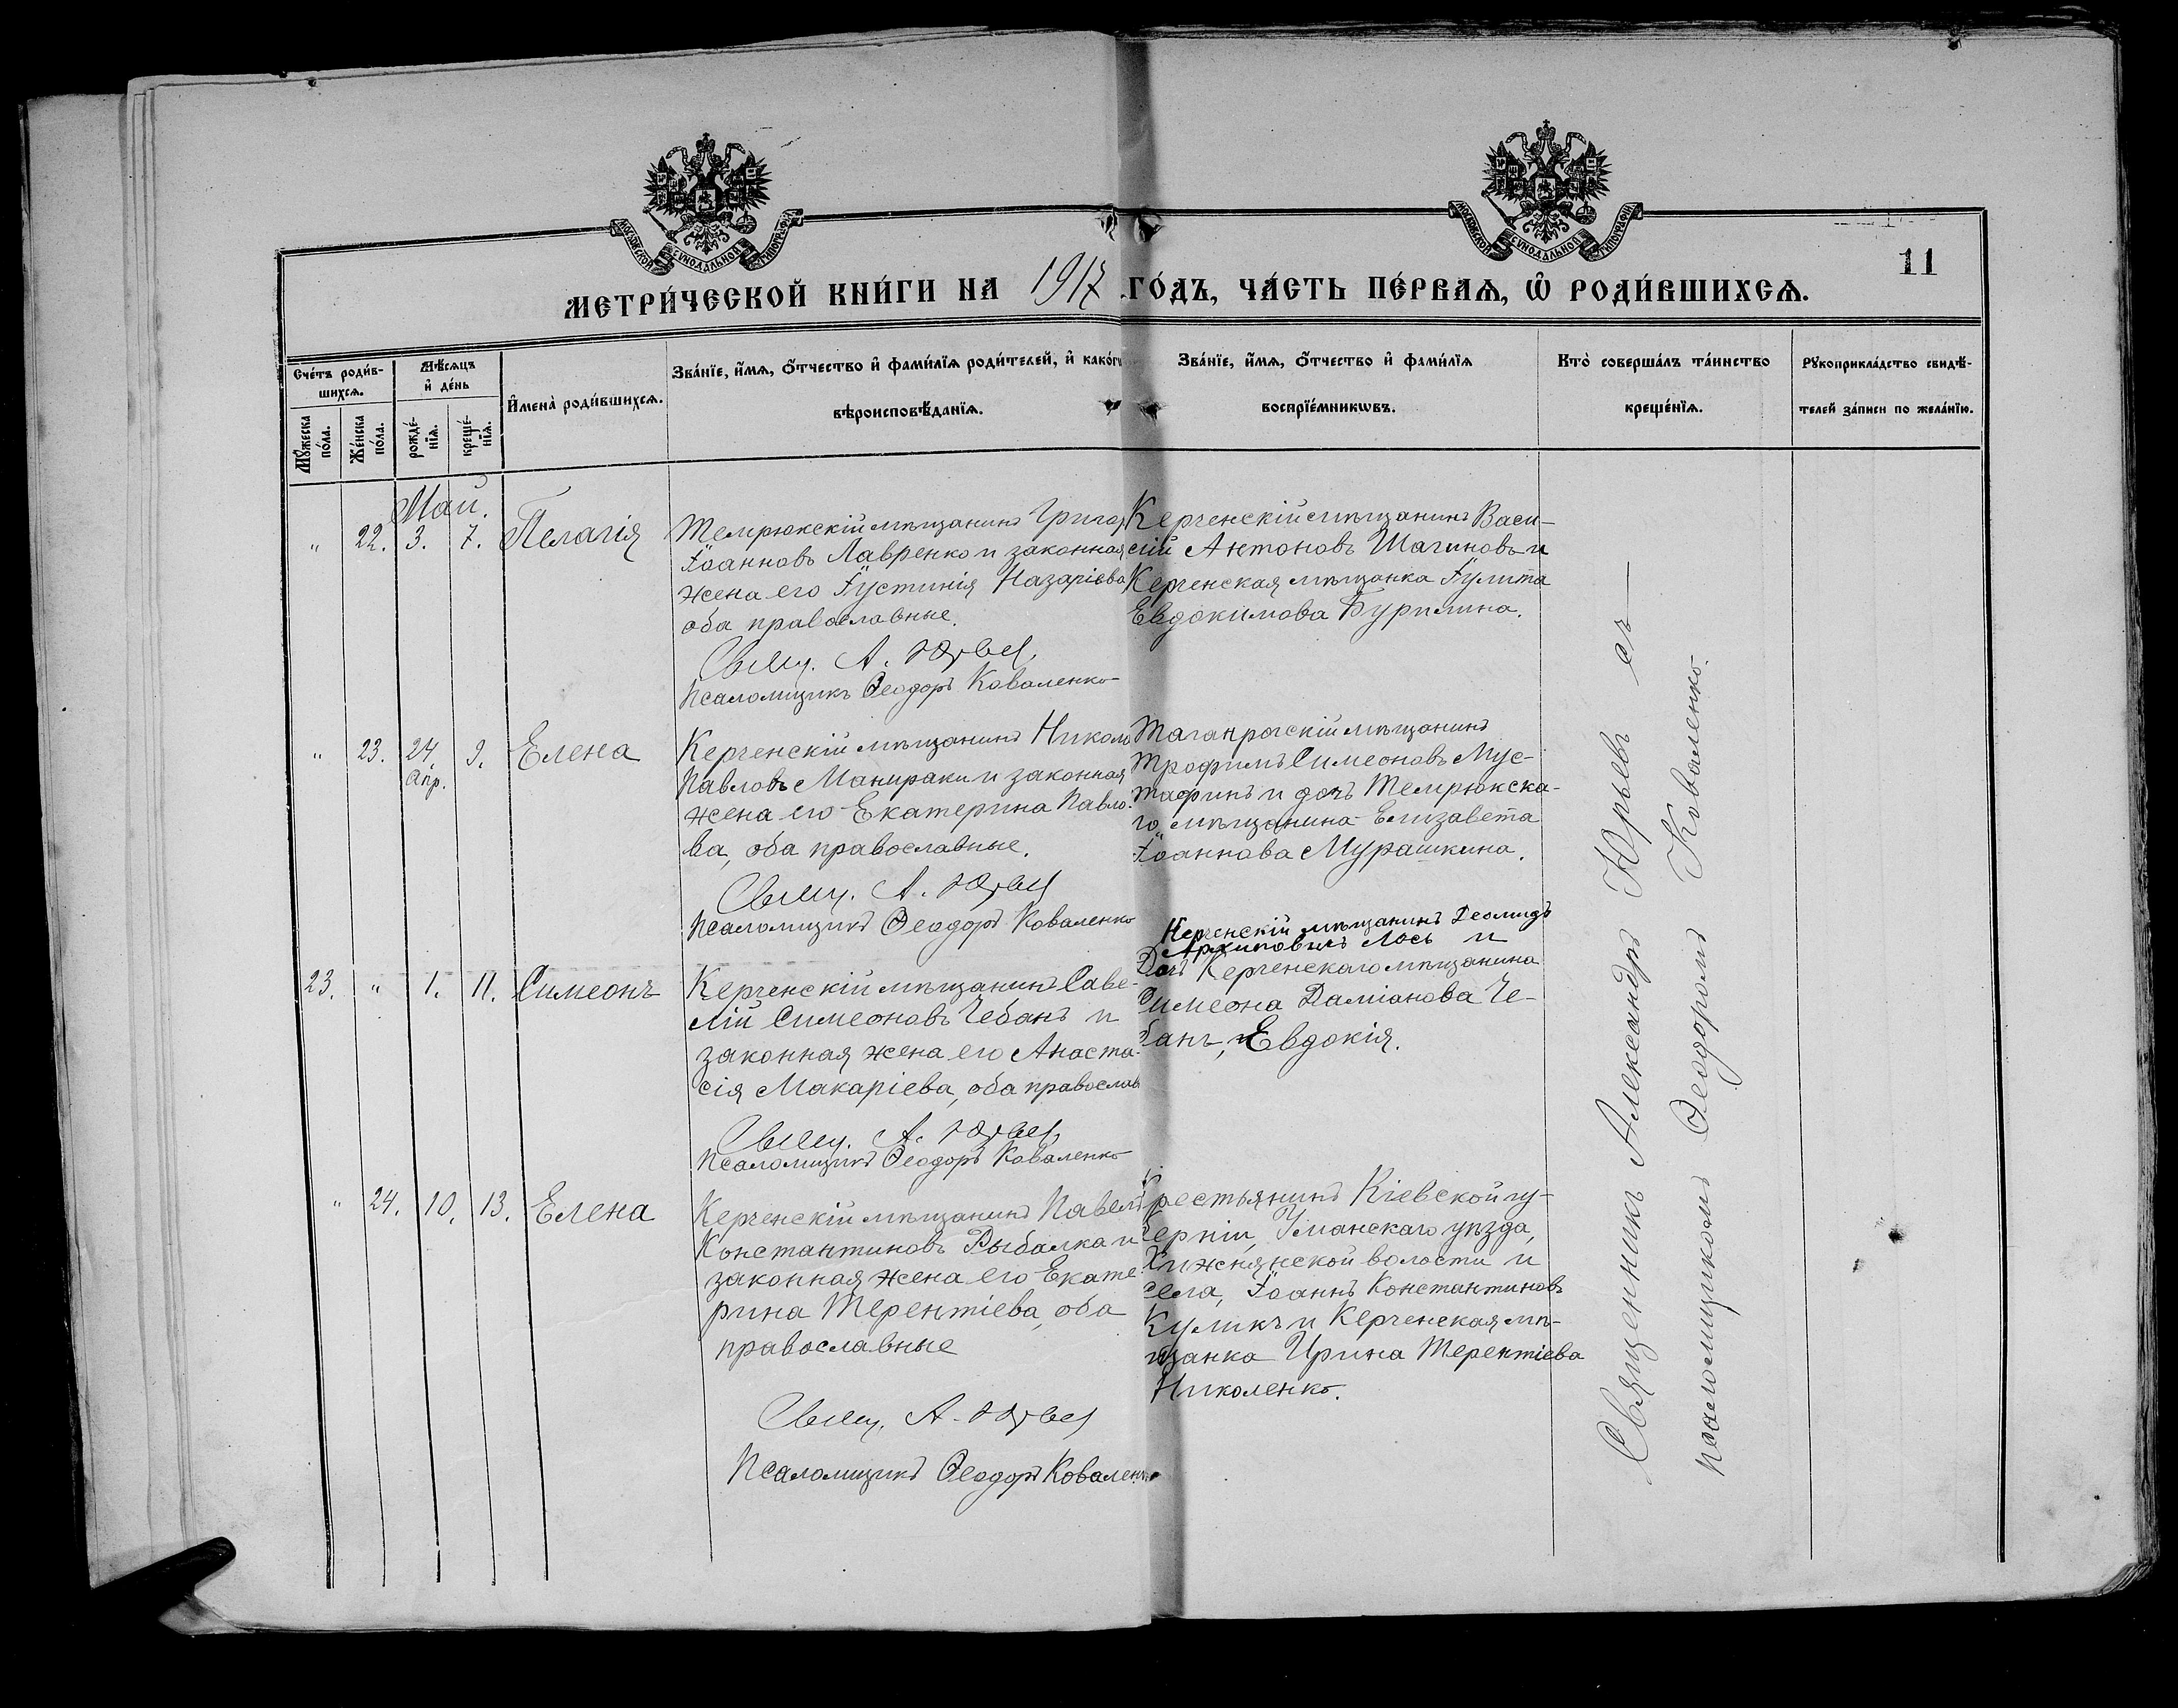 МОСКОВСКОЙ СѴНОДАЛЬНОЙ ТИПОГРАФІИ
МОСКОВСКОЙ СѴНОДАЛЬНОЙ ТИПОГРАФІИ
11
МЕТРИ́ЧЕСКОЙ КНИ́ГИ НА 1917 ГО́ДЪ, ЧА́СТЬ ПЕ́РВАѦ, Ѡ҆ РОДИ́ВШИХСѦ.
Сче́тъ роди́в-
шихсѧ.
Мꙋ́жеска
по́ла.
Же́нска
по́ла.
Мѣ́сѧцъ
и҆ де́нь
рожде́-
нїѧ.
креще́-
нїѧ.
И҆мена̀ роди́вшихсѧ.
Зва́нїе, и҆́мѧ, ѻ҆́тчество и҆ фами́лїѧ роди́телей, и҆ како́гѡ
вѣроисповѣ́данїѧ.
Зва́нїе, и҆́мѧ, ѻ҆́тчество и҆ фами́лїѧ
воспрїе́мникѡвъ.
Кто̀ соверша́лъ та́инство
креще́нїѧ.
Рꙋкоприкла́дство свидѣ́-
телей за́писи по жела́нїю.
Май.
" 22. 3. 7. Пелагія
Темрюкскій мѣщанинъ Григор
Іоанновъ Лавренко и законная
жена его Іустинія Назаріева
оба православные.
Свящ. А. Юрьев
Псаломщикъ Ѳеодоръ Коваленко
Керченскій мѣщанинъ Васи-
лій Антоновъ Шагиновъ и
Керченская мѣщанка Іулита
Евдокимова Бурилина.
" 23. 24. 9. Елена
Апр.
Керченскій мѣщанинъ Никола
Павловъ Манираки и законная
жена его Екатерина Павло-
ва, оба православные.
Свящ. А. Юрьев
Псаломщикъ Ѳеодоръ Коваленко
Таганрогскій мѣщанинъ
Трофимъ Симеоновъ Мус-
тафинъ и дочь Темрюкска-
го мѣщанина Елизавета
Іоаннова Мурашкина.
23. " 1. 11. Симеонъ
Керченскій мѣщанинъ Саве-
лій Симеоновъ Чебанъ и
законная жена его Анаста-
сія Макаріева, оба православ
Свящ. А. Юрьев
Псаломщикъ Ѳеодоръ Коваленко
Керченскій мѣщанинъ Деомидъ
Архиповичъ Лось и
Дочь Керченскаго мѣщанина
Симеона Даміанова Че-
банъ, Евдокія.
" 24. 10. 13. Елена
Керченскій мѣщанинъ Павелъ
Константиновъ Рыбалка и
законная жена его Екате-
рина Терентіева, оба
православные
Свящ. А. Юрьев
Псаломщикъ Ѳеодоръ Коваленко
Крестьянинъ Кіевской гу-
берніи, Уманскаго уѣзда,
Хижнянской волости и
села, Іоаннъ Константиновъ
Куликъ и Керченская мѣ-
щанка Ирина Терентіева
Николенко.
Священникъ Александръ Юрьевъ съ
псаломщикомъ Ѳеодоромъ Коваленко.